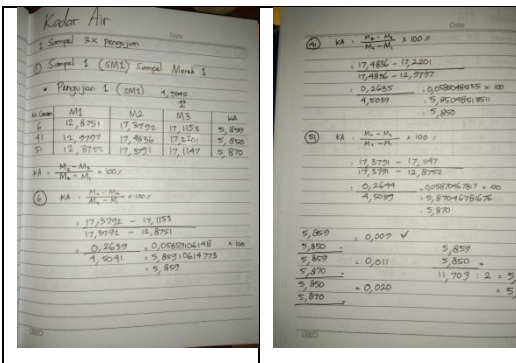 Kadar Air
1 Sampel 3x pengujian
① Sampel 1 (SM1) Sampel Merah 1
• Pengujian 1 (SM1)
No Cawan M1 M2 M3 KA
6 12,8751 17,3792 17,1153 5,859
41 12,9797 17,4836 17,2201 5,850
51 12,8752 17,3791 17,1147 5,870
KA = M₂ - M₃ / M₂ - M₁ x 100 %
⑥ KA = M₂ - M₃ / M₂ - M₁ x 100 %
= 17,3792 - 17,1153
17,3792 - 12,8751
= 0,2639 = 0,0585910614 x 100
4,5041 = 5,8591061477
= 5,859
Date
㊶ KA = M₂ - M₃ / M₂ - M₁ x 100 %
= 17,4836 - 17,2201
17,4836 - 12,9797
= 0,2635 x 100
4,5039
= 5,850
(51) KA = M₂ - M₃ / M₂ - M₁ x 100 %
= 17,3791 - 17,1147
17,3791 - 12,8752
= 0,2644 x 100
4,5039 = 5,87046781676
= 5,870
5,859
5,850 - = 0,009 ✓
5,859
5,870 - = 0,011
5,850
5,870 - = 0,020
5,859
5,850 +
11,709 : 2 = 5,
= 5,